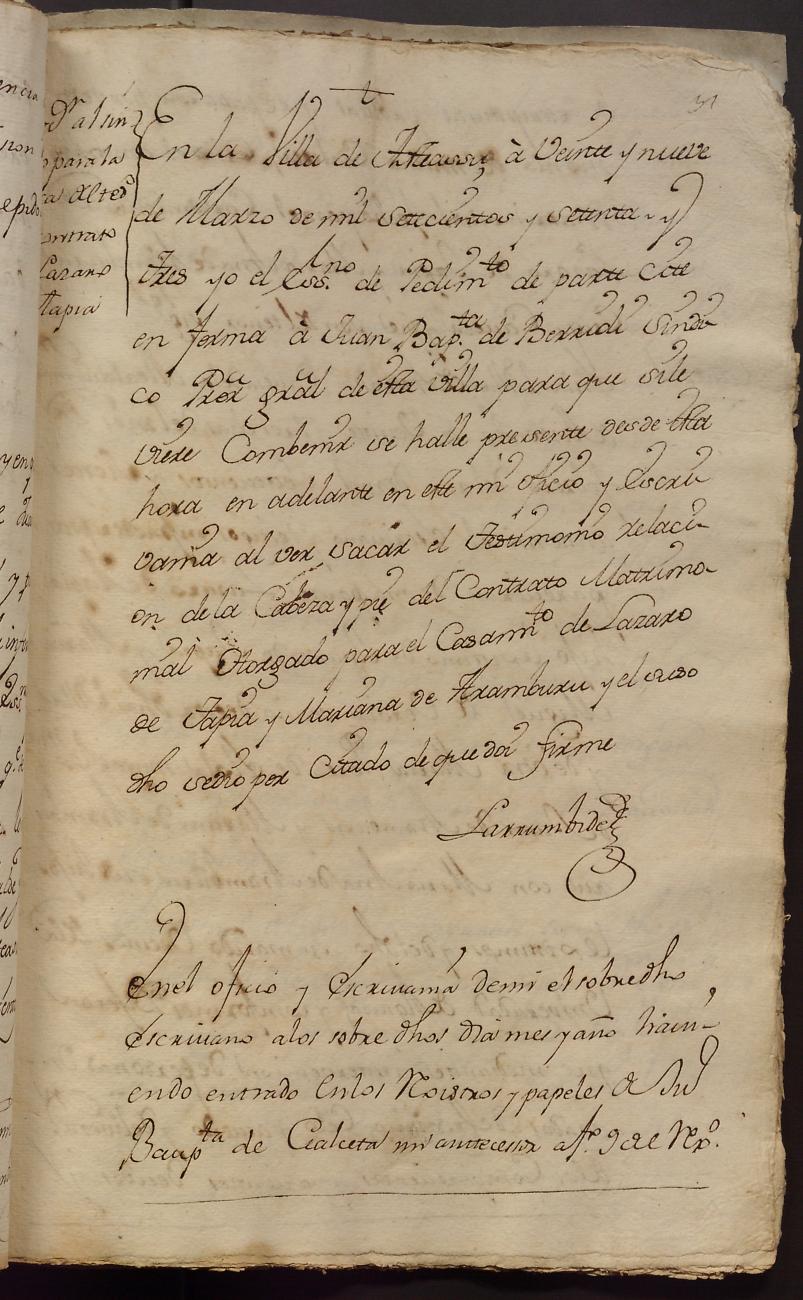 31
En la Villa de Asteasu, à Veinte y nueve
de Marzo de mil setecientos y setenta y
tres yo el Essno. de Pedimto de parte Cite
en forma à Juan Bapta. de Berridi Sindi
co Pror gral de esta villa para que si le
viere Combenir se halle presente desde esta
hora en adelante en este mi oficio y Escri
vania al ver sacar el Testimonio relaci-
on de la Cabeza y pie del Contrato Matrimo-
nial Otorgado para el Casamto de Lazaro
de Tapia y Mariana de Aramburu y el suso
dho se dio por Citado de que doi firme
Larrumbide
En el oficio y Escrivania de mi el sobre dho
Escrivano a los sobre dhos dia mes y año havi-
endo entrado en los Rexistros y papeles de Jn
Baupta de mi antecesor
para la
contrato
Lazaro
tapia